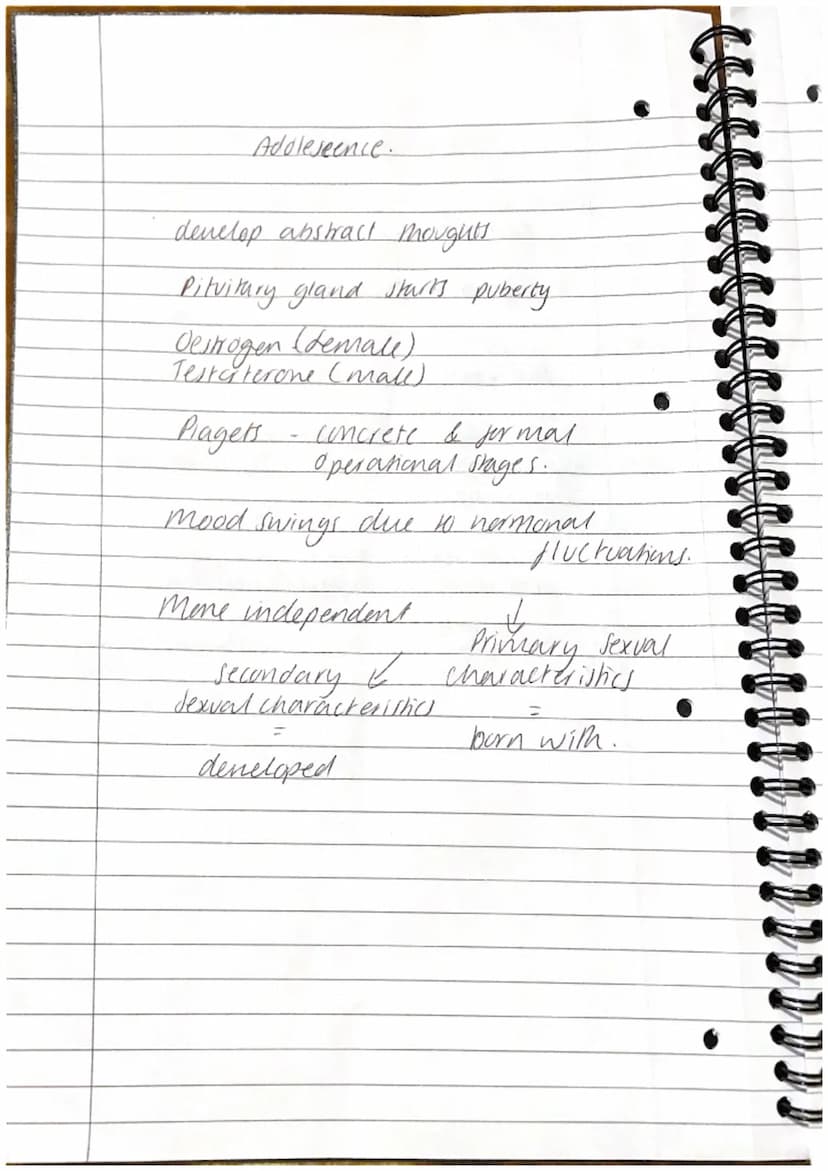 Adolescence.
develop abstract thoughts
Pituitary gland starts puberty
Oestrogen (female)
Testosterone (male)
Piagets - concrete & formal
operational stages.
Mood swings due to hormonal
fluctuations.
More independent ↓
Primary sexual
secondary ↙ characteristics
sexual characteristics =
= born with.
developed